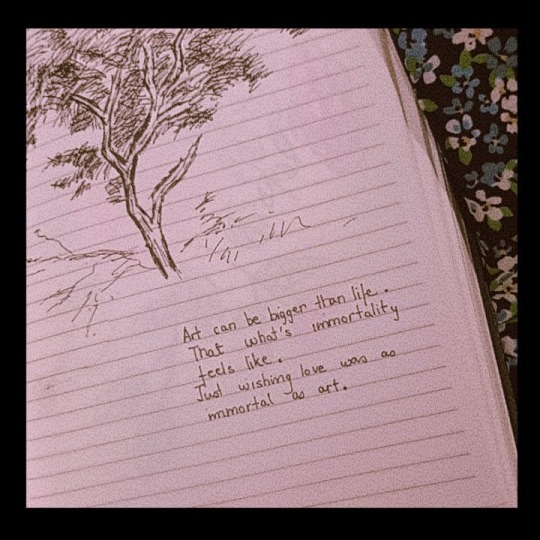 Art can be bigger than life.
That what's immortality
feels like.
Just wishing love was as
immortal as art.